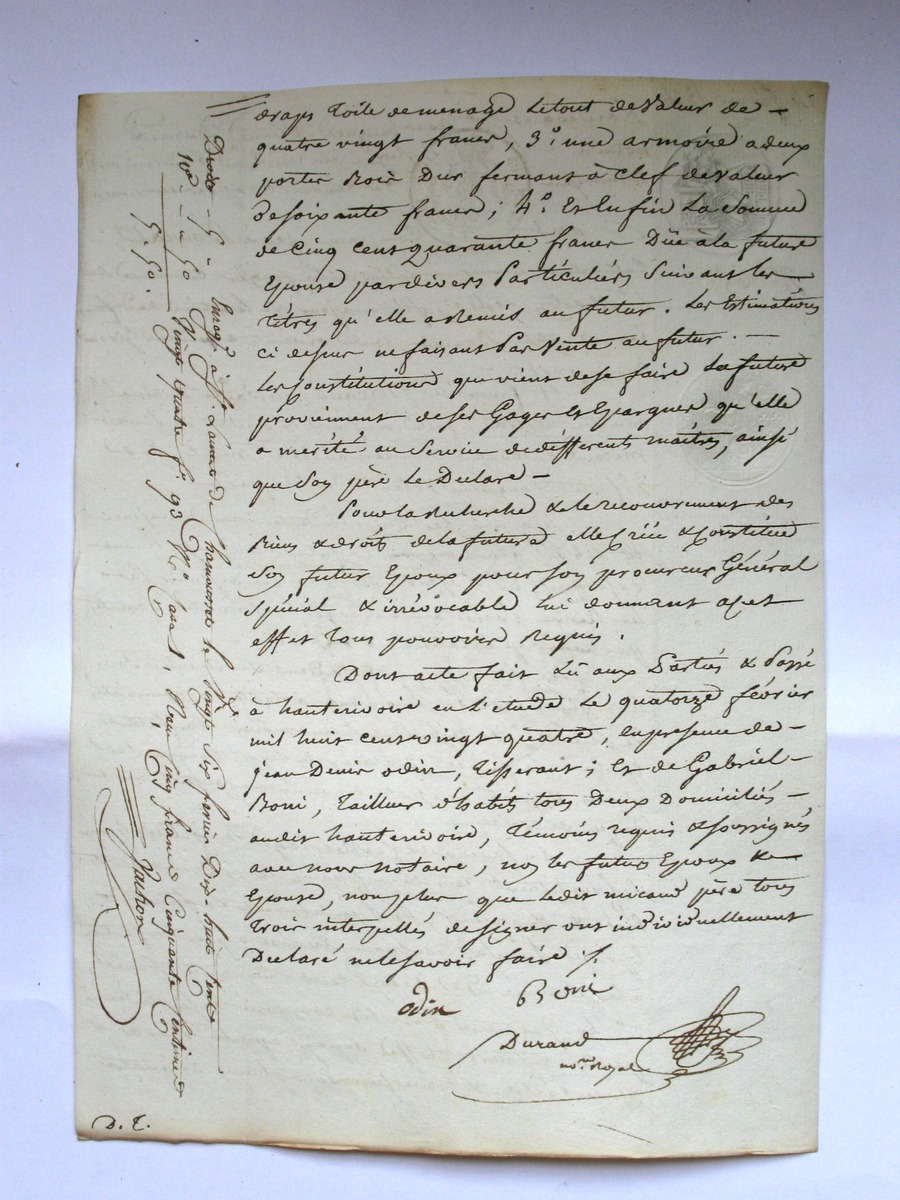 draps toile de menage le tout de valeur de -
quatre vingt francs, 3.º une armoire a deux
portes Bois Dur fermant à Clef de valeur
de soixante francs; 4.º Et Enfin La Somme
de Cinq cent quarante francs Düe à la future
Epouse par divers Particuliérs Suivant les
titres qu'elle a Remis au futur. Les Estimations
ci dessus ne faisant Pas Vente au futur. -
Les Constitutions que vient de se faire La future
proviennent de ses Gages et Epargnes qu'elle
a mérité au Service de différents maitres, ainsi
que Son père Le Declare -
Pour la Recherche & le recouvrement des
Biens & droits de la future elle Créé & Constitue
Son futur Epoux pour Son procureur Général
Spécial & irrévocable lui donnant a cet
effet tous pouvoirs Requis.
Dont acte fait Lû aux Parties & Passé
à hauterivoire en l'etude Le quatorze février
mil huit cent vingt quatre, en presence de -
jean Denis odin, tisserant; Et de Gabriel -
Boni, Tailleur d'habits tous Deux Domiciliés -
audit hauterivoire, Témoins requis & soussignés
avec nous notaire, non les futurs Epoux &
Epouse, non plus que Ledit micaud père tous
Trois interpellés de signer ont individuellement
Declaré ne le savoir faire ./.
odin Boni
Durand
no.re Royal
Droits - 5 - "
10.e - " - 50
5. 50.
Enreg.é à S.t Laurent de Chamousset le Vingt Six fevrier Dix-huit Cent
Vingt quatre f.º 93 R.º Case 1, Reçu Cinq francs Cinquante Centimes
Vachon
D. T.